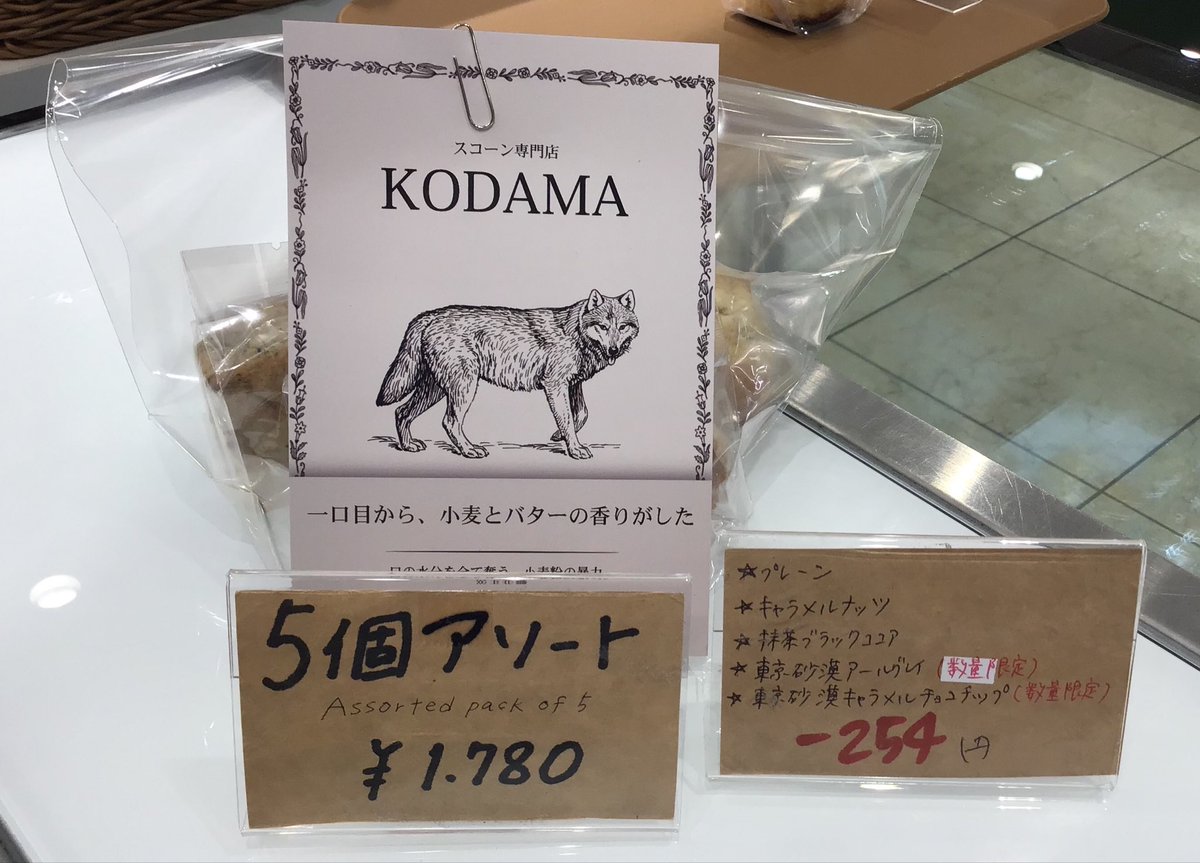 スコーン専門店
KODAMA
一口目から、小麦とバターの香りがした
口の水分を全て奪う、小麦粉の暴力
5個アソート
Assorted pack of 5
¥1.780
☆プレーン
☆キャラメルナッツ
☆抹茶ブラックココア
☆東京砂漠アールグレイ(数量限定)
☆東京砂漠キャラメルチョコチップ(数量限定)
-254円